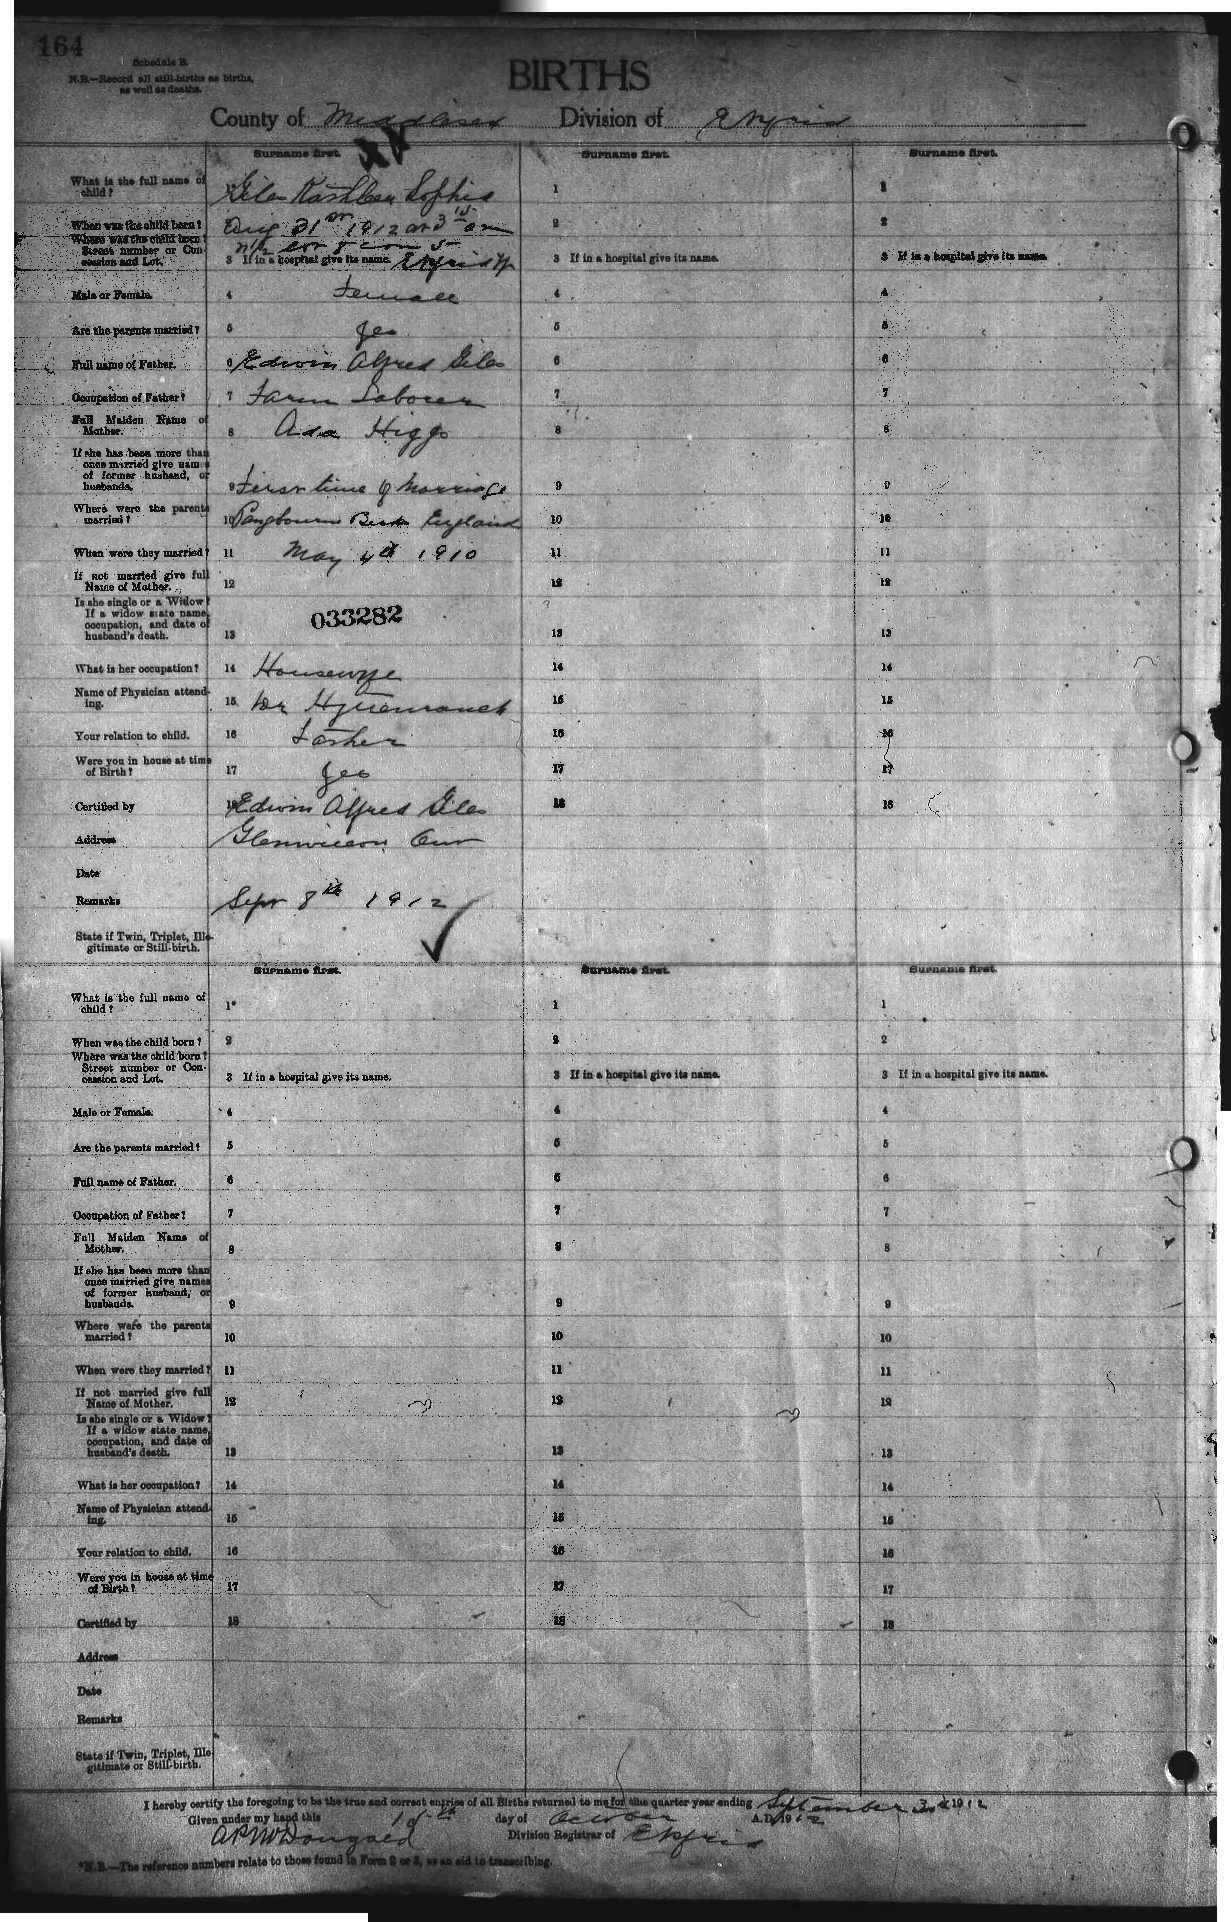 164
Schedule B.
N.B.—Record all still-births as births,
as well as deaths.
BIRTHS
County of Middlesex Division of Ekfrid
Surname first. Surname first. Surname first.
What is the full name of
child?
Giles Kathleen Sophia 1 1
When was the child born? Aug 31st 1912 at 3 15 am 2 2
Where was the child born?
Street number or Con-
cession and Lot.
n 1/2 Lot 8 con 5
3 If in a hospital give its name. Ekfrid Tp 3 If in a hospital give its name. 3 If in a hospital give its name.
Male or Female. 4 Female 4 4
Are the parents married? 5 Yes 5 5
Full name of Father. 6 Edwin Alfred Giles 6 6
Occupation of Father? 7 Farm Laborer 7 7
Full Maiden Name of
Mother. 8 Ada Higgs 8 8
If she has been more than
once married give names
of former husband, or
husbands. 9 First time of Marriage 9 9
Where were the parents
married? 10 Pangbourn Berks England 10 10
When were they married? 11 May 4th 1910 11 11
If not married give full
Name of Mother. 12 12 12
Is she single or a Widow?
If a widow state name,
occupation, and date of
husband's death. 13 13 13
033282
What is her occupation? 14 Housewife 14 14
Name of Physician attend-
ing. 15 Dr 15 15
Your relation to child. 16 Father 16 16
Were you in house at time
of Birth? 17 Yes 17 17
Certified by 18 Edwin Alfred Giles 18 18
Address Glenwillow Ont
Date
Remarks Sept 8th 1912
State if Twin, Triplet, Ille-
gitimate or Still-birth.
Surname first. Surname first. Surname first.
What is the full name of
child? 1* 1 1
When was the child born? 2 2 2
Where was the child born?
Street number or Con-
cession and Lot. 3 If in a hospital give its name. 3 If in a hospital give its name. 3 If in a hospital give its name.
Male or Female. 4 4 4
Are the parents married? 5 5 5
Full name of Father. 6 6 6
Occupation of Father? 7 7 7
Full Maiden Name of
Mother. 8 8 8
If she has been more than
once married give names
of former husband, or
husbands. 9 9 9
Where were the parents
married? 10 10 10
When were they married? 11 11 11
If not married give full
Name of Mother. 12 12 12
Is she single or a Widow?
If a widow state name,
occupation, and date of
husband's death. 13 13 13
What is her occupation? 14 14 14
Name of Physician attend-
ing. 15 15 15
Your relation to child. 16 16 16
Were you in house at time
of Birth? 17 17 17
Certified by 18 18 18
Address
Date
Remarks
State if Twin, Triplet, Ille-
gitimate or Still-birth.
I hereby certify the foregoing to be the true and correct entries of all Births returned to me for the quarter year ending September 30th 1912
Given under my hand this 15th day of October A.D. 1912
A P McDougald Division Registrar of Ekfrid
*N.B.—The reference numbers relate to those found in Form 2 or 3, as an aid to transcribing.